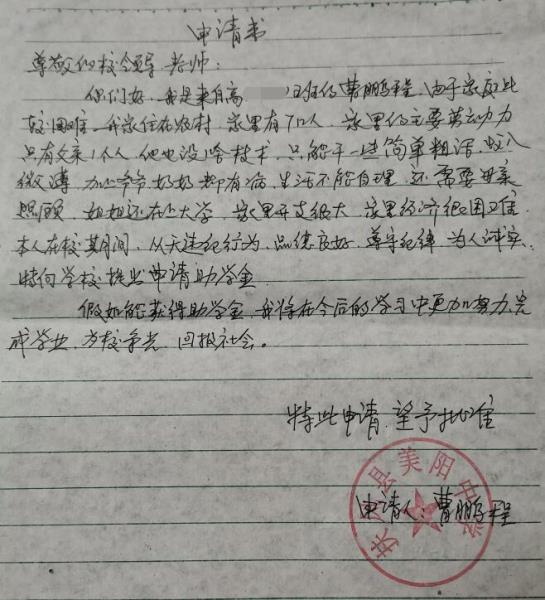 申请书
尊敬的校领导 老师：
你们好，我是来自高 班的曹鹏程，由于家庭比
较困难，我家住在农村，家里有7口人，家里的主要劳动力
只有父亲1个人，他也没啥技术，只能干一些简单粗活，收入
微薄，加上爷爷奶奶都有病，生活不能自理，还需要母亲
照顾，姐姐还在上大学，家里开支很大，家里经济很困难，
本人在校期间，从无违纪行为，品德良好，尊守纪律，为人诚实，
特向学校提出申请助学金
假如能获得助学金，我将在今后的学习中更加努力，完
成学业，为校争光，回报社会。
特此申请，望予批准
申请人：曹鹏程
扶风县美阳中学